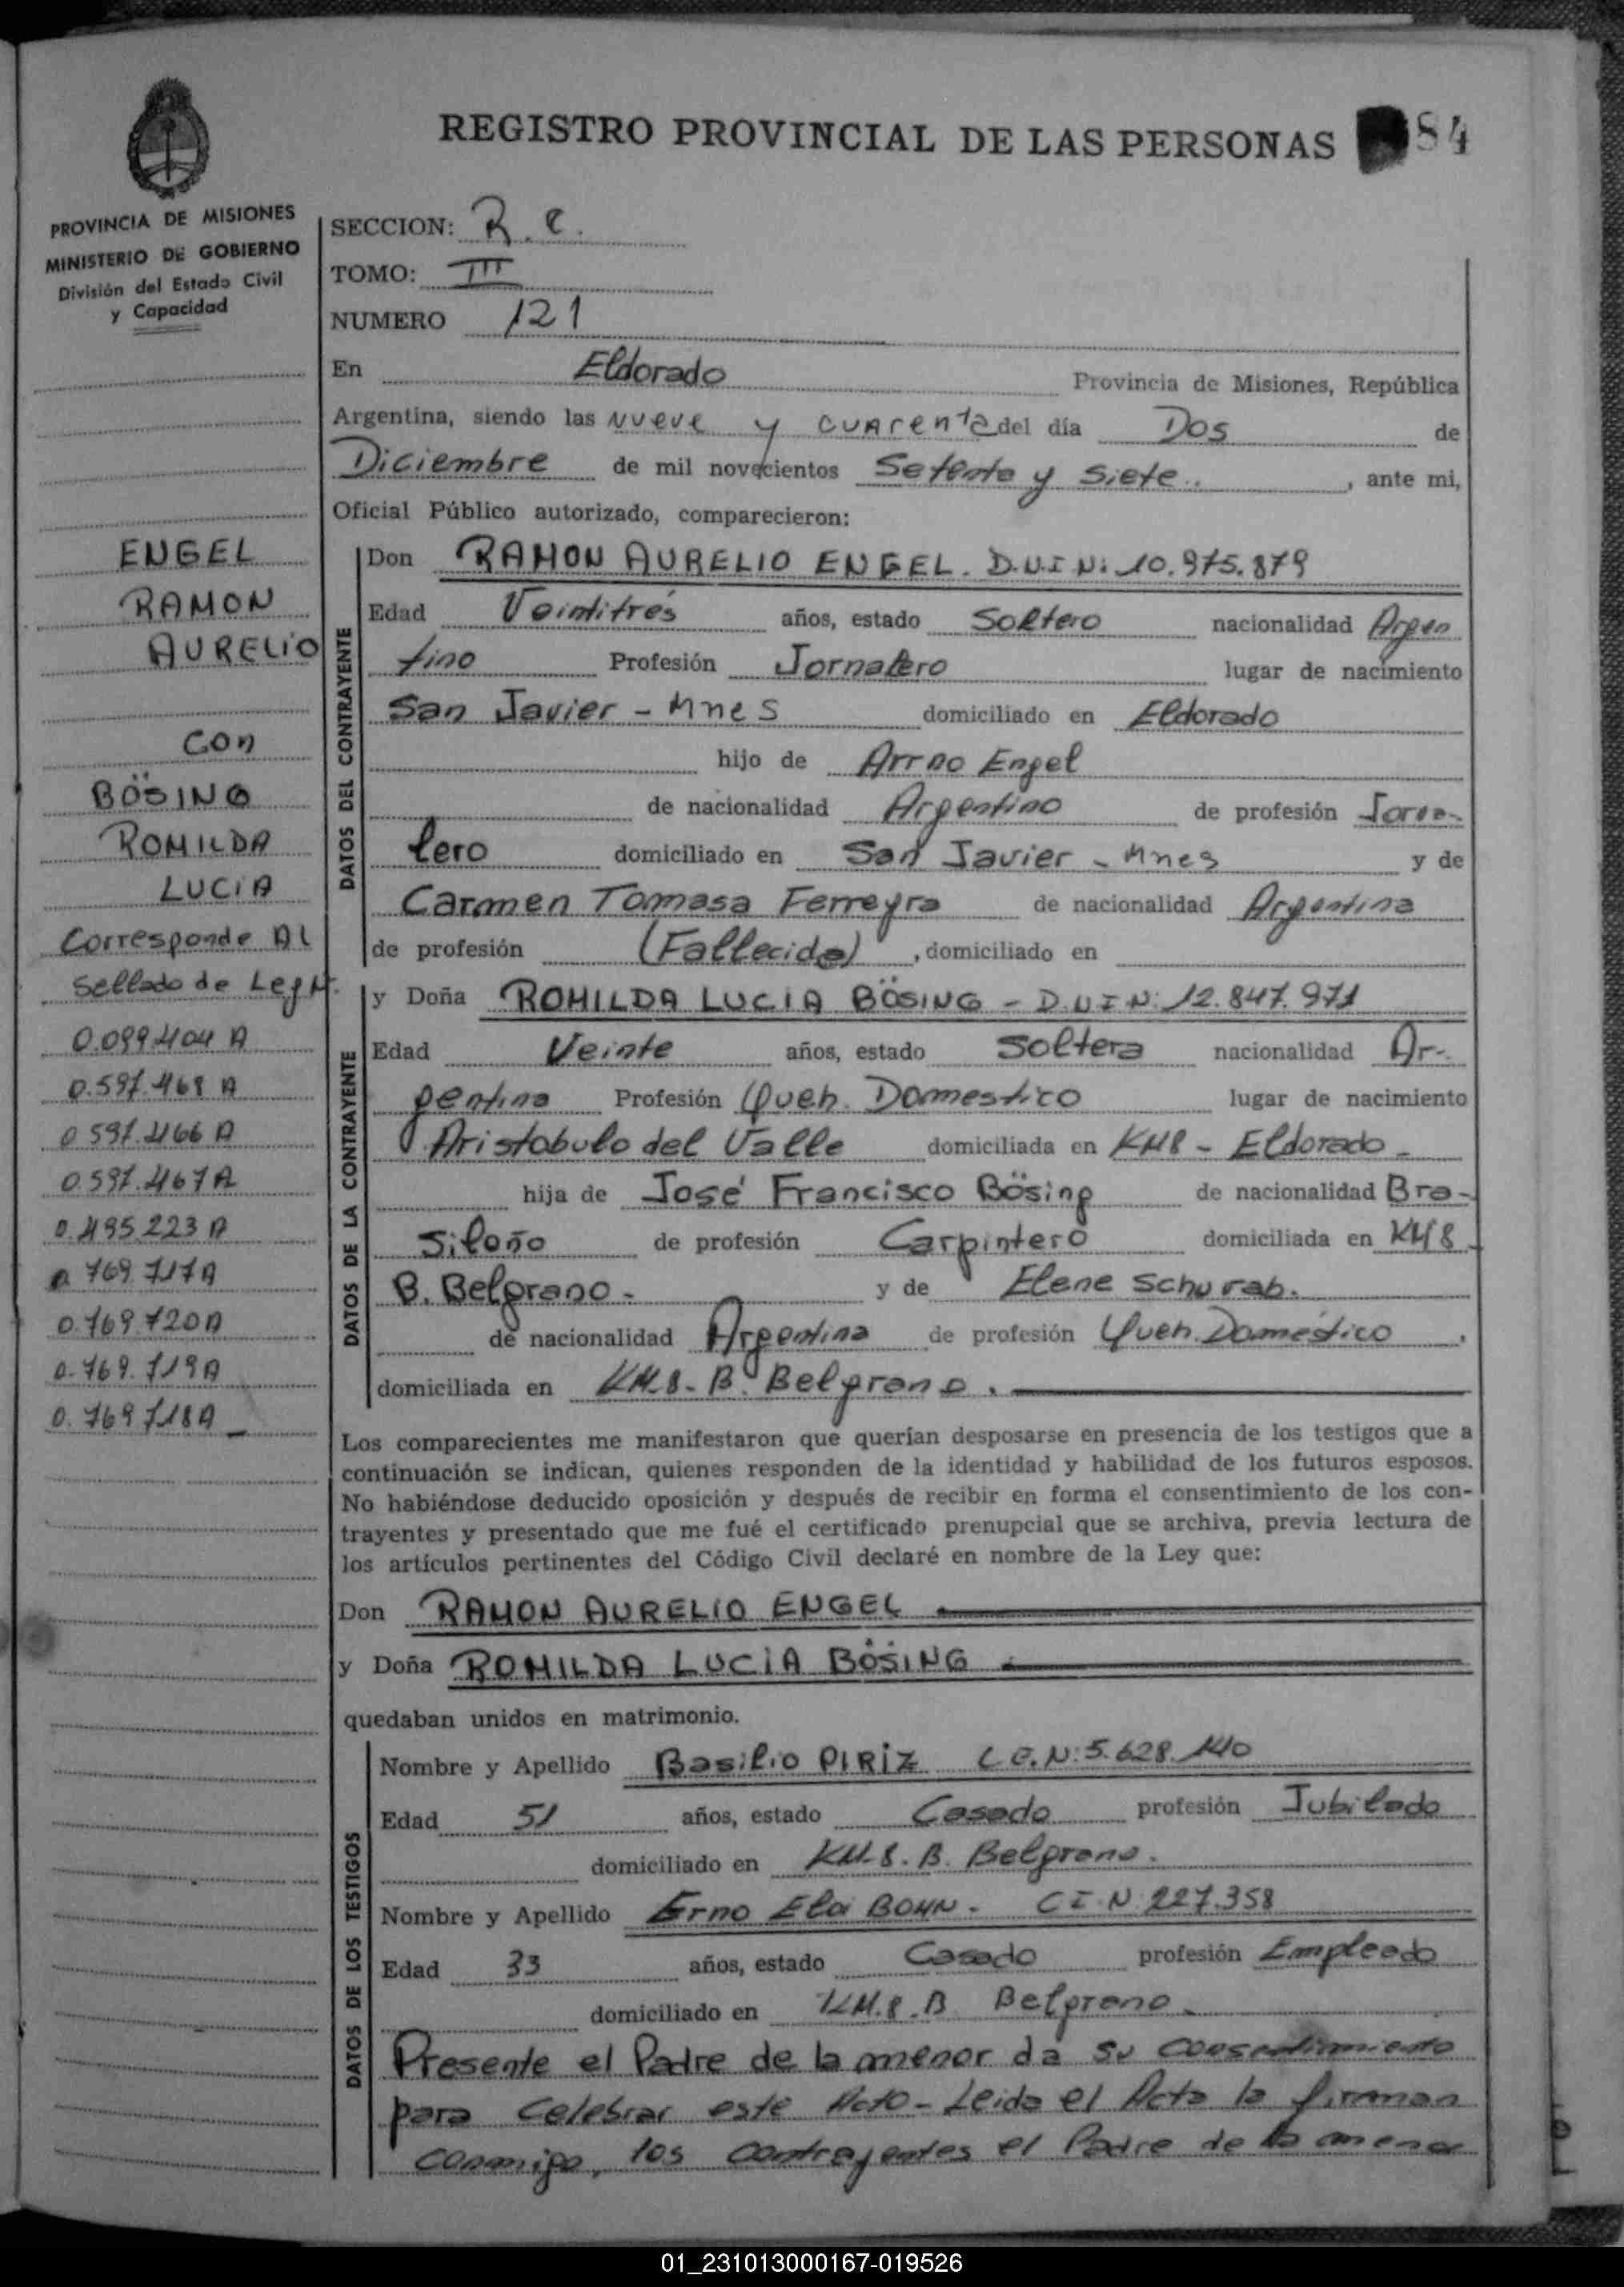 REGISTRO PROVINCIAL DE LAS PERSONAS 84
PROVINCIA DE MISIONES
MINISTERIO DE GOBIERNO
División del Estado Civil
y Capacidad
ENGEL
RAMON
AURELIO
con
BÖSING
ROMILDA
LUCIA
Corresponde Al
Sellado de Ley N.
0.099.404 A
0.597.468 A
0 597.466 A
0.597.467 A
0.495.223 A
0 769.717 A
0.769.720 A
0.769.719 A
0.769 718 A
SECCION: R.C.
TOMO: III
NUMERO 121
En Eldorado Provincia de Misiones, República
Argentina, siendo las Nueve y cuarenta del día Dos de
Diciembre de mil novecientos Setenta y Siete. , ante mi,
Oficial Público autorizado, comparecieron:
DATOS DEL CONTRAYENTE
Don RAMON AURELIO ENGEL. D.U.I N: 10.975.879
Edad Veintitrés años, estado Soltero nacionalidad Argen
tino Profesión Jornalero lugar de nacimiento
San Javier - Mnes domiciliado en Eldorado
hijo de Arrno Engel
de nacionalidad Argentino de profesión Jorna-
lero domiciliado en San Javier - Mnes y de
Carmen Tomasa Ferreyra de nacionalidad Argentina
de profesión (Fallecida) , domiciliado en
DATOS DE LA CONTRAYENTE
y Doña ROMILDA LUCIA BÖSING - D.U.I N: 12.847.971
Edad Veinte años, estado Soltera nacionalidad Ar-
gentina Profesión Queh. Domestico lugar de nacimiento
Aristobulo del Valle domiciliada en KM8 - Eldorado -
hija de José Francisco Bösing de nacionalidad Bra-
sileño de profesión Carpintero domiciliada en KM8 -
B. Belgrano - y de Elena Schwab.
de nacionalidad Argentina de profesión Queh. Doméstico .
domiciliada en KM.8 - B. Belgrano .
Los comparecientes me manifestaron que querían desposarse en presencia de los testigos que a
continuación se indican, quienes responden de la identidad y habilidad de los futuros esposos.
No habiéndose deducido oposición y después de recibir en forma el consentimiento de los con-
trayentes y presentado que me fué el certificado prenupcial que se archiva, previa lectura de
los artículos pertinentes del Código Civil declaré en nombre de la Ley que:
Don RAMON AURELIO ENGEL
y Doña ROMILDA LUCIA BÖSING
quedaban unidos en matrimonio.
DATOS DE LOS TESTIGOS
Nombre y Apellido Basilio PIRIZ L.E. N: 5.628.140
Edad 51 años, estado Casado profesión Jubilado
domiciliado en KM-8. B. Belgrano.
Nombre y Apellido Erno Eloi BOHN - C I. N 227.358
Edad 33 años, estado Casado profesión Empleado
domiciliado en KM.8. B Belgrano
Presente el Padre de la menor da su consentimiento
para celebrar este Acto - Leida el Acta la firman
conmigo, los contrayentes el Padre de la menor
01_231013000167-019526